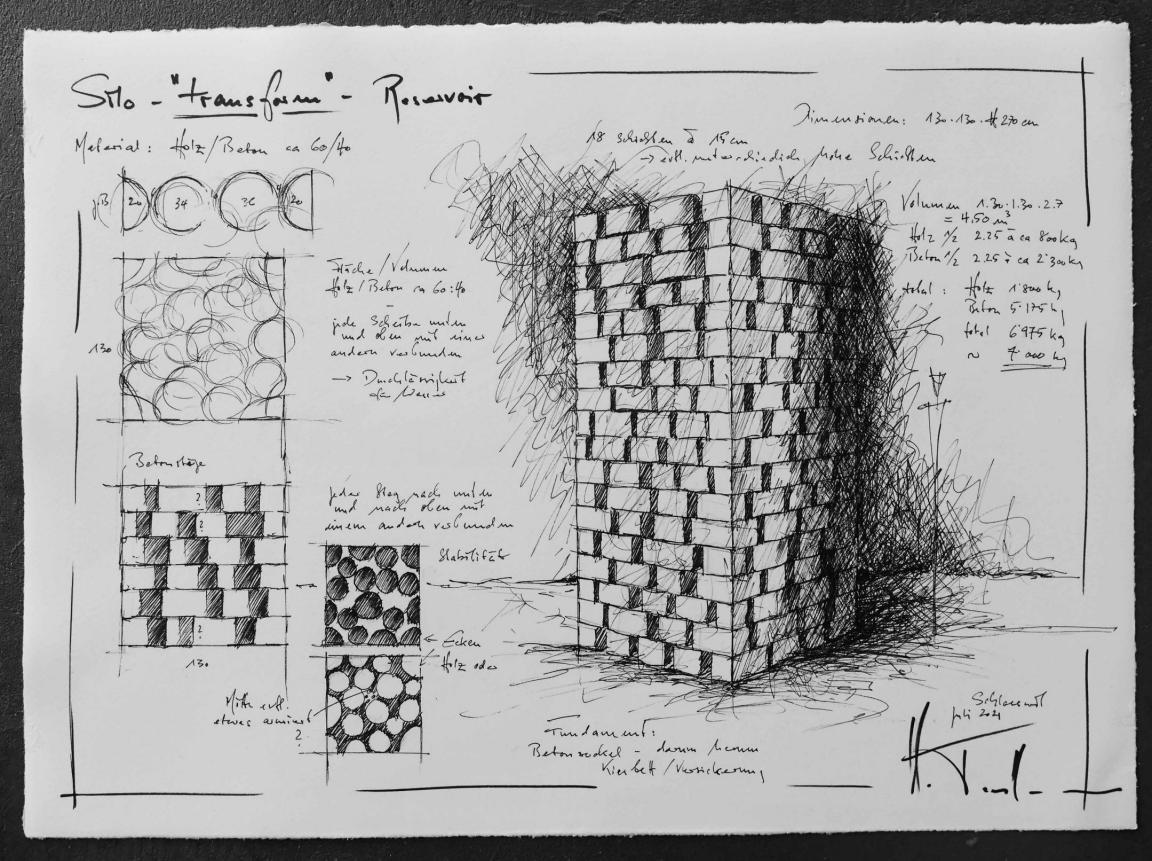 Silo - "transform" - Reservoir
Material: Holz/Beton ca 60/40
20 34 36 20
Fläche/Volumen
Holz/Beton ca 60:40
jede Scheibe unten
und oben mit einer
andern verbunden
→ Durchlässigkeit
130
Betonstege
?
?
?
130
jeder Steg nach unten
und nach oben mit
einem andern verbunden
Stabilität
← Ecken
Holz oder
Mitte evtl.
etwas armiert
?
18 Schichten à 15cm
→ evtl. unterschiedlich hohe Schichten
Dimensionen: 130·130·H 270 cm
Volumen 1.30·1.30·2.7
= 4.50 m³
Holz 1/2 2.25 à ca 800kg
Beton 1/2 2.25 à ca 2'300kg
total: Holz 1'800 kg
Beton 5'175 kg
total 6'975 kg
~ 7'000 kg
Fundament:
Betonsockel - darum herum
Kiesbett/Versickerung
Juli 2021